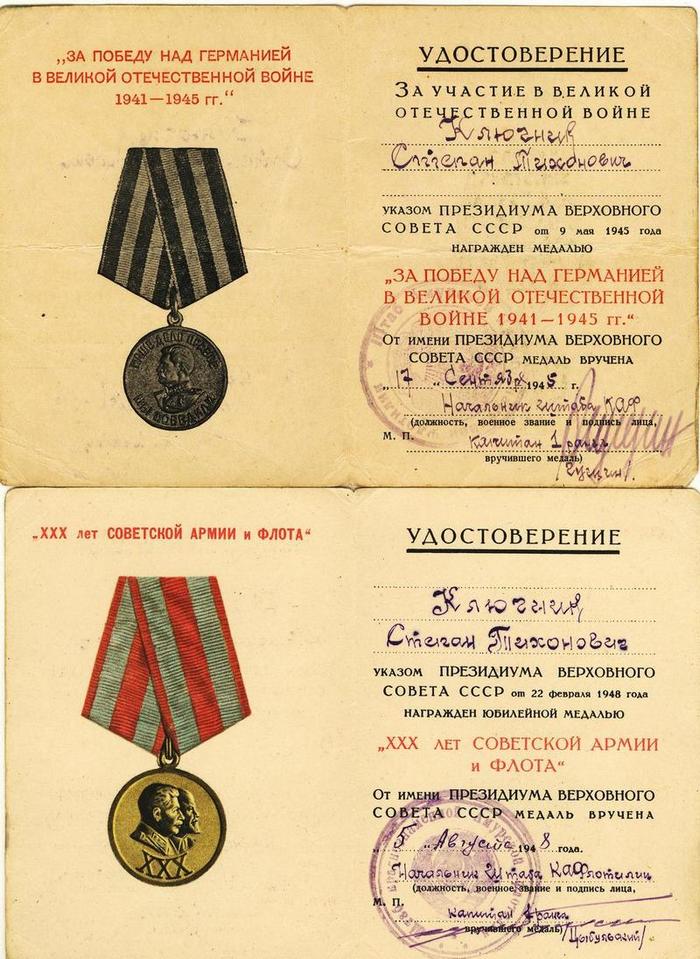 „ЗА ПОБЕДУ НАД ГЕРМАНИЕЙ
В ВЕЛИКОЙ ОТЕЧЕСТВЕННОЙ ВОЙНЕ
1941—1945 гг.“
НАШЕ ДЕЛО ПРАВОЕ
МЫ ПОБЕДИЛИ
УДОСТОВЕРЕНИЕ
ЗА УЧАСТИЕ В ВЕЛИКОЙ
ОТЕЧЕСТВЕННОЙ ВОЙНЕ
Ключник
Степан Тихонович
УКАЗОМ ПРЕЗИДИУМА ВЕРХОВНОГО
СОВЕТА СССР от 9 мая 1945 года
НАГРАЖДЕН МЕДАЛЬЮ
„ЗА ПОБЕДУ НАД ГЕРМАНИЕЙ
В ВЕЛИКОЙ ОТЕЧЕСТВЕННОЙ
ВОЙНЕ 1941—1945 гг.“
От имени ПРЕЗИДИУМА ВЕРХОВНОГО
СОВЕТА СССР МЕДАЛЬ ВРУЧЕНА
„17„ Сентября 1945 г.
Начальник штаба КАФ
(должность, военное звание и подпись лица,
М. П. капитан 1 ранга
вручившего медаль)
/Гущин/.
„XXX лет СОВЕТСКОЙ АРМИИ и ФЛОТА“
XXX
УДОСТОВЕРЕНИЕ
Ключник
Степан Тихонович
УКАЗОМ ПРЕЗИДИУМА ВЕРХОВНОГО
СОВЕТА СССР от 22 февраля 1948 года
НАГРАЖДЕН ЮБИЛЕЙНОЙ МЕДАЛЬЮ
„XXX лет СОВЕТСКОЙ АРМИИ
и ФЛОТА“
От имени ПРЕЗИДИУМА ВЕРХОВНОГО
СОВЕТА СССР МЕДАЛЬ ВРУЧЕНА
„5„ Августа 1948 года.
Начальник Штаба КАФлотилии
(должность, военное звание и подпись лица,
М. П.
капитан 1 ранга
вручившего медаль)
/Цыбульский/